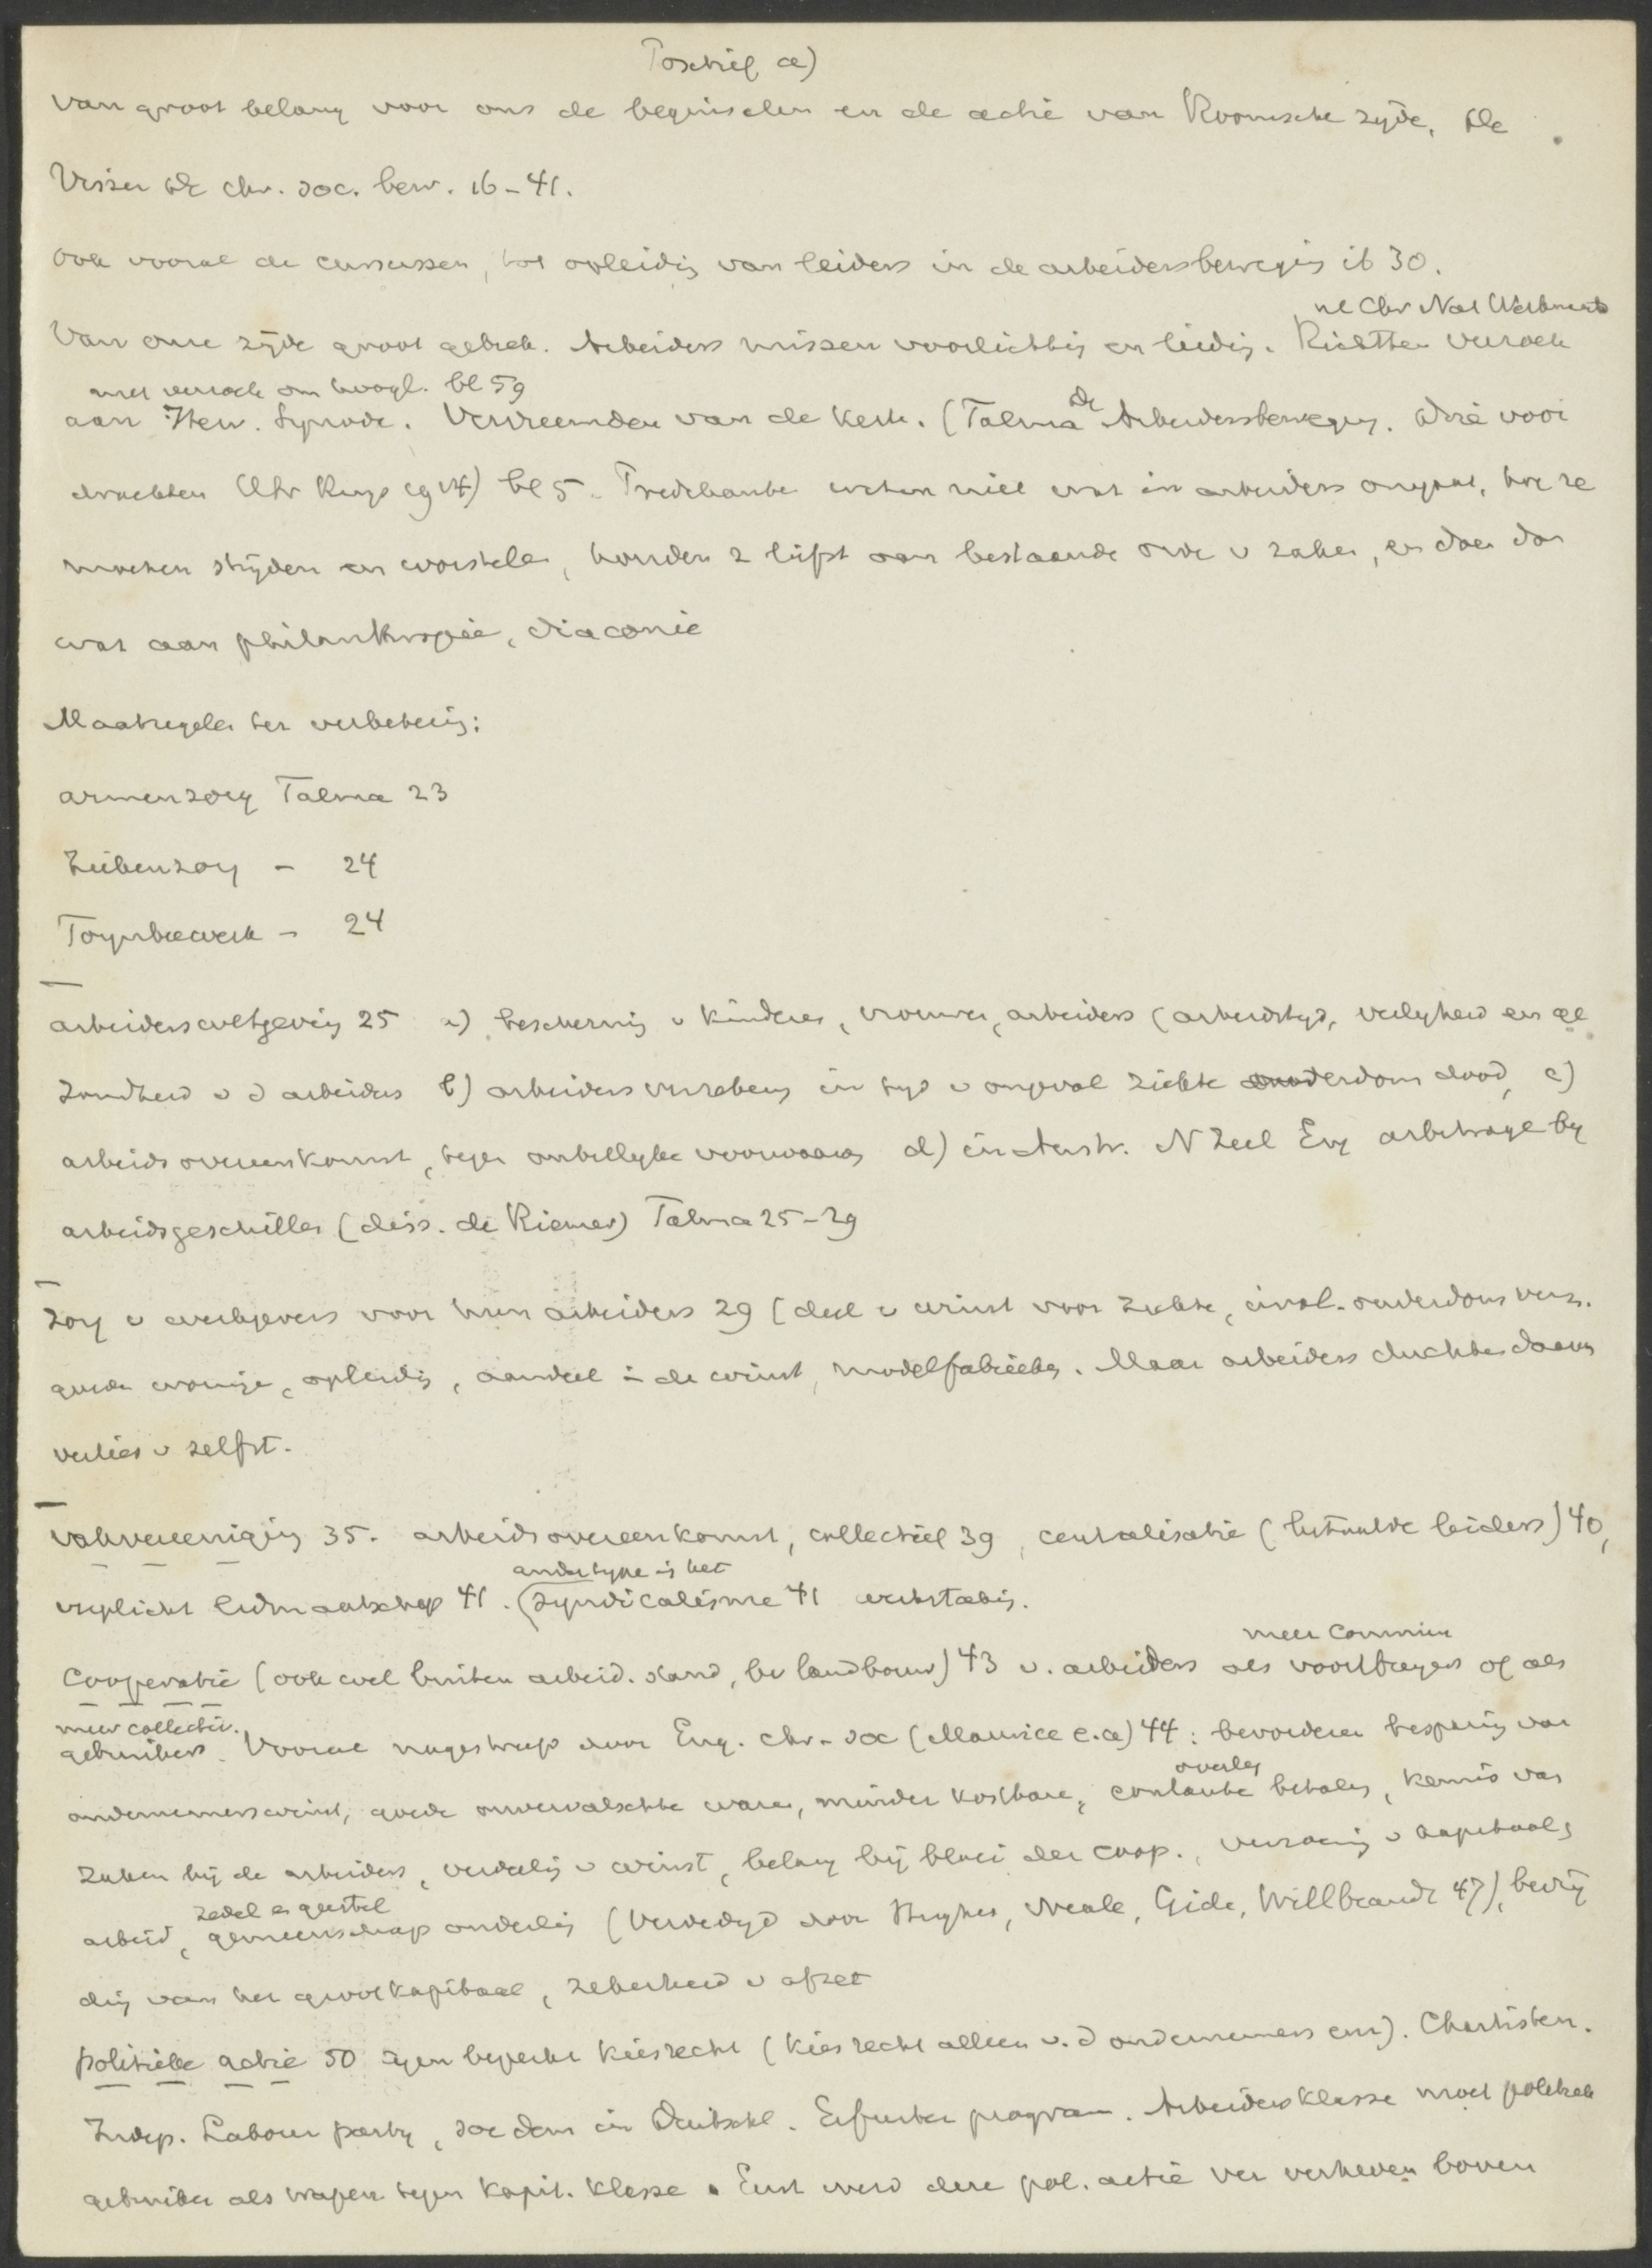 Positief a)
van groot belang voor ons de beginselen en de actie van Roomsche zijde, de
Visser de chr. soc. bew. 16-41.
Ook vooral de cursussen, tot opleidig van leiders in de arbeidersbewegig ib 30.
nl Chr Nat Werkmansb
Van onze zijde groot gebrek. Arbeiders missen voorlichtig en leidig. Richtten verzoek
met verzoek om hoogl. bl 59
aan Herv. Synode. Vervreemden van de Kerk. (Talma de Arbeidersbeweging. Drie voor
drachten Utr Ruys 1914) bl 5. Predikanten weten niet wat in arbeiders omgaat, hoe ze
moeten strijden en worstelen, houden z liefst aan bestaande orde v zaken, en doen dan
wat aan philanthropie, diaconie
Maatregelen ter verbeterig:
armenzorg Talma 23
Ziekenzorg - 24
Toynbeewerk - 24
arbeiderswetgevig 25 a) beschermig v kinderen, vrouwen, arbeiders (arbeidstyd, veiligheid en ge
zondheid v d arbeiders b) arbeidersverzekerg in tyd v ongeval ziekte ouderdom dood, c)
arbeidsovereenkomst, tegen onbillyke voorwaardn d) in Austr. N Zeel Eng arbitrage by
arbeidsgeschillen (diss. de Riemer) Talma 25-29
Zorg v werkgevers voor hun arbeiders 29 (deel v winst voor ziekte, inval. ouderdoms verz.
goede woninge, opleidig, aandeel in de winst, modelfabrieken. Maar arbeiders duchten daarin
verlies v zelfst.
vakvereenigig 35. arbeidsovereenkomst, collectief 39, centralisatie (betaalde leiders) 40,
ander type is het
verplicht lidmaatschap 41. (Syndicalisme 41 werkstakig.
meer commun
Cooperatie (ook wel buiten arbeid. stand, bv landbouw) 43 v. arbeiders als voortbrengers of als
meer collectiv.
gebruikers. Vooral nagestreefd door Eng. chr-soc (Maurice e.a) 44: bevorderen besparig van
overleg
ondernemerswinst, goede onvervalschte waren, minder kostbare, contante betalg, kennis van
zaken bij de arbeiders, verdeelig v winst, belang bij bloei der coop., verzoenig v kapitaal &
zedel en geestel
arbeid, gemeenschap onderlig (Verdedigd door Hughes, Neale, Gide, Willbrandt 47), bevrij
dig van het grootkapitaal, zekerheid v afzet
politieke actie 50 tegen beperkt kiesrecht (kiesrecht alleen v. d ondernemers enz). Chartisten.
Indep. Labour party, soc dem in Duitschl. Erfurter program. Arbeidersklasse moet politiek
gebruiken als wapen tegen kapit. klasse. Eerst werd deze pol. actie ver verheven boven